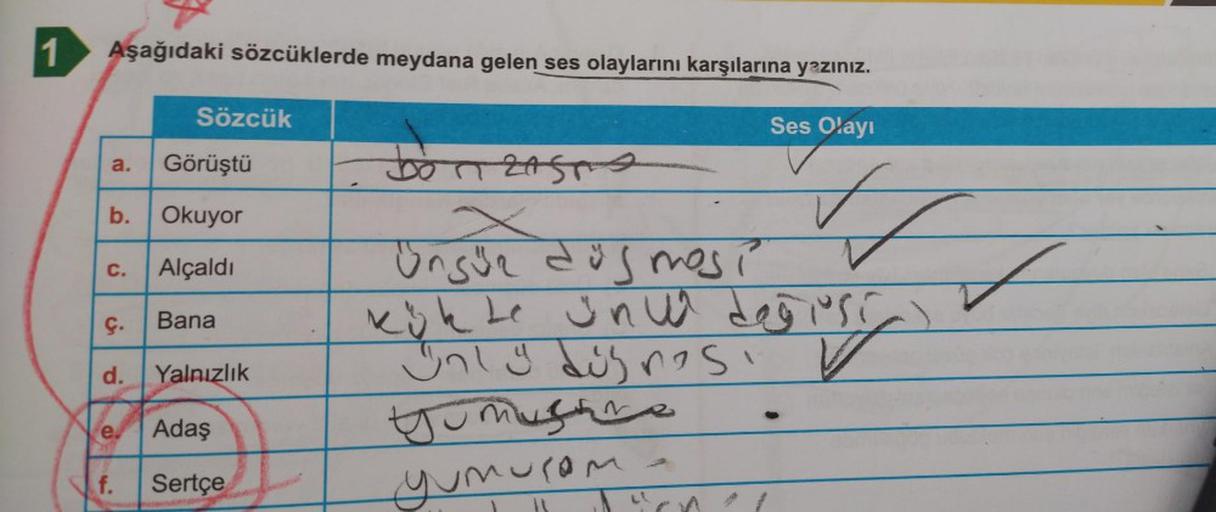 1 Aşağıdaki sözcüklerde meydana gelen ses olaylarını karşılarına yazınız.
Sözcük Ses Olayı
a. Görüştü
b. Okuyor
c. Alçaldı Ünsüz düşmesi
ç. Bana kökte ünlü değişi
d. Yalnızlık ünlü düşmesi
e. Adaş
f. Sertçe